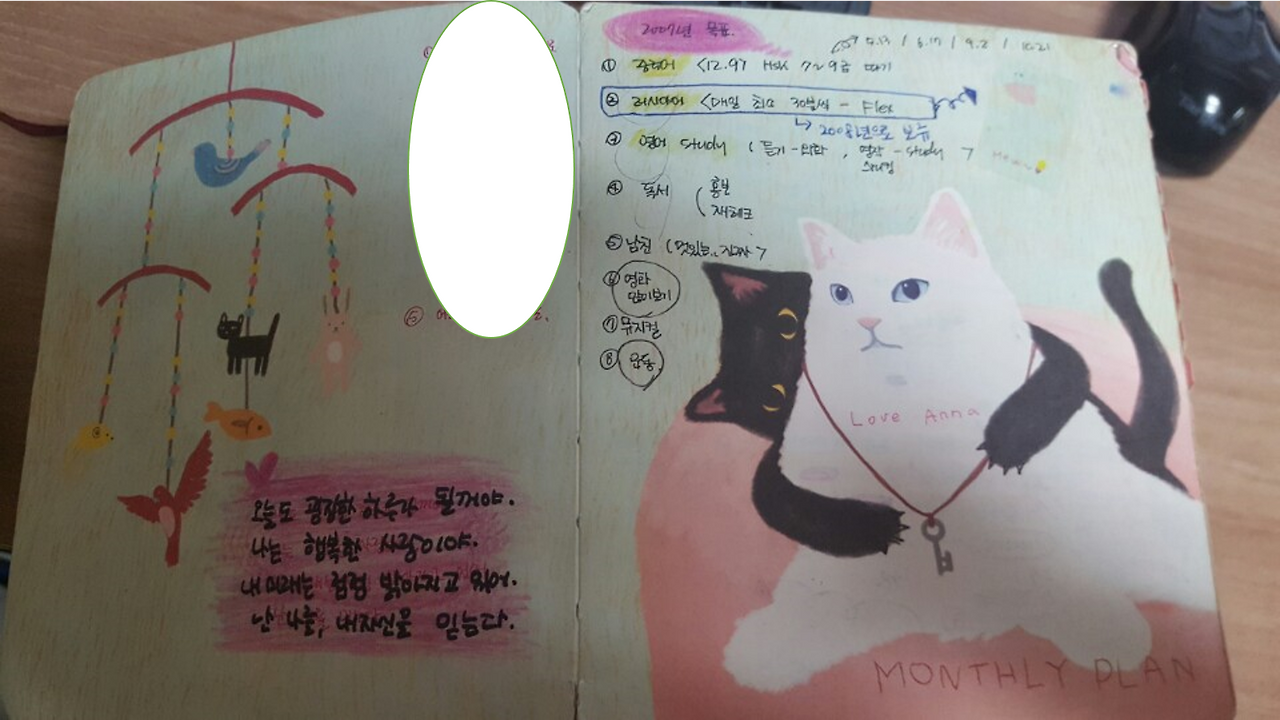 오늘도 굉장한 하루가 될꺼야.
나는 행복한 사람이야.
내 미래는 점점 밝아지고 있어.
난 나를, 내자신을 믿는다.
2007년 목표.
5.13 / 6.17 / 9.2 / 10.21
① 중국어 <12.9> HSK 7~9급 따기
② 러시아어 <매일 최소 30분씩 - Flex
↳ 2008년으로 보류
③ 영어 study ( 듣기 - 외화, 영작 - study >
④ 독서 ( 홍보
재테크
⑤ 남친 (멋있는.. 진짜 >
⑥ 영화
많이보기
⑦ 뮤지컬
⑧ 운동
Love Anna
MONTHLY PLAN